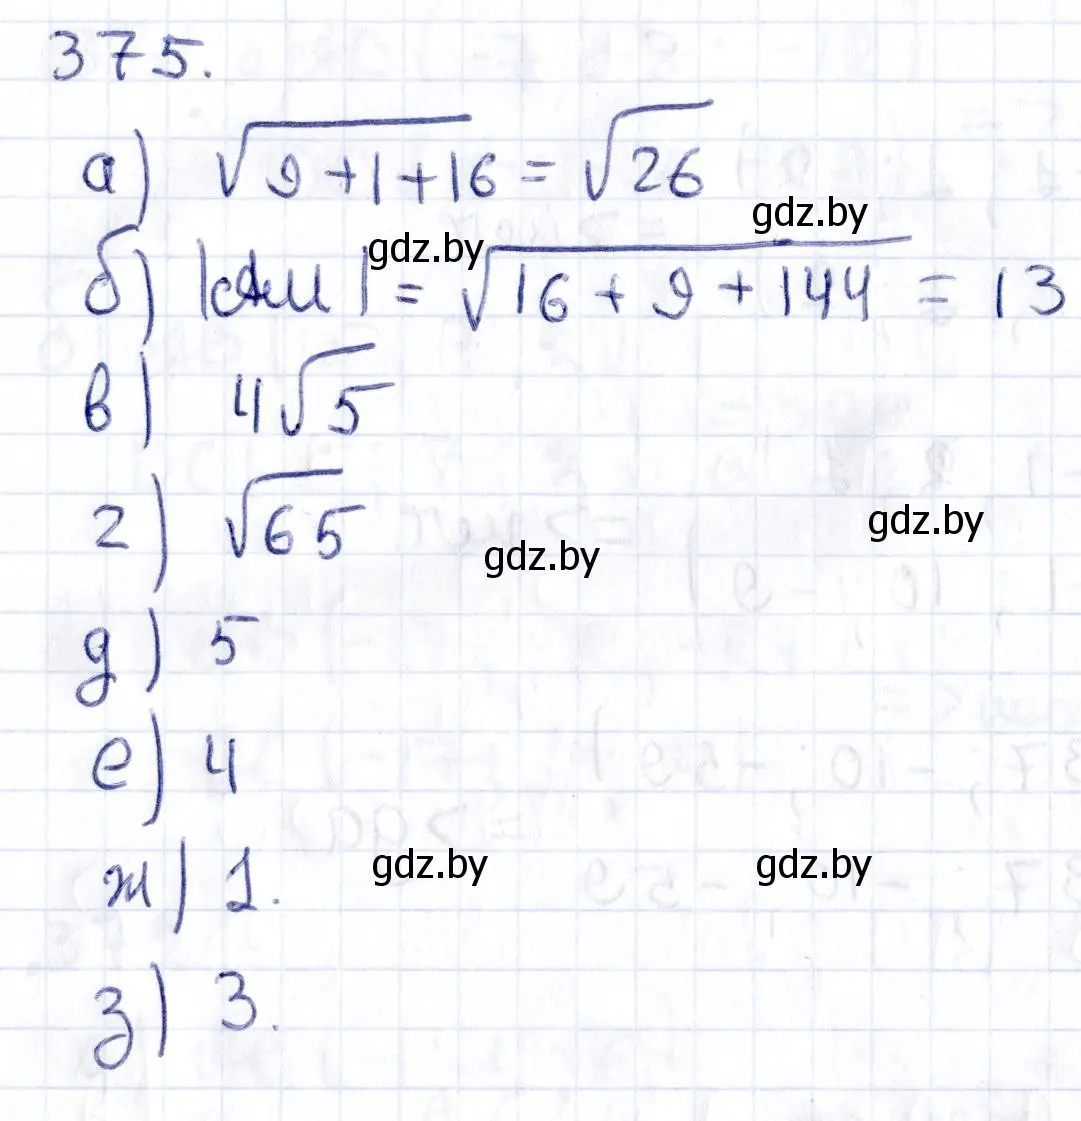 375.
а) √9+1+16 = √26
gdz.by
б) | | = √16 + 9 + 144 = 13
gdz.by
в) 4√5
г) √65
gdz.by
gdz.by
д) 5
е) 4
ж) 1.
gdz.by gdz.by
з) 3.